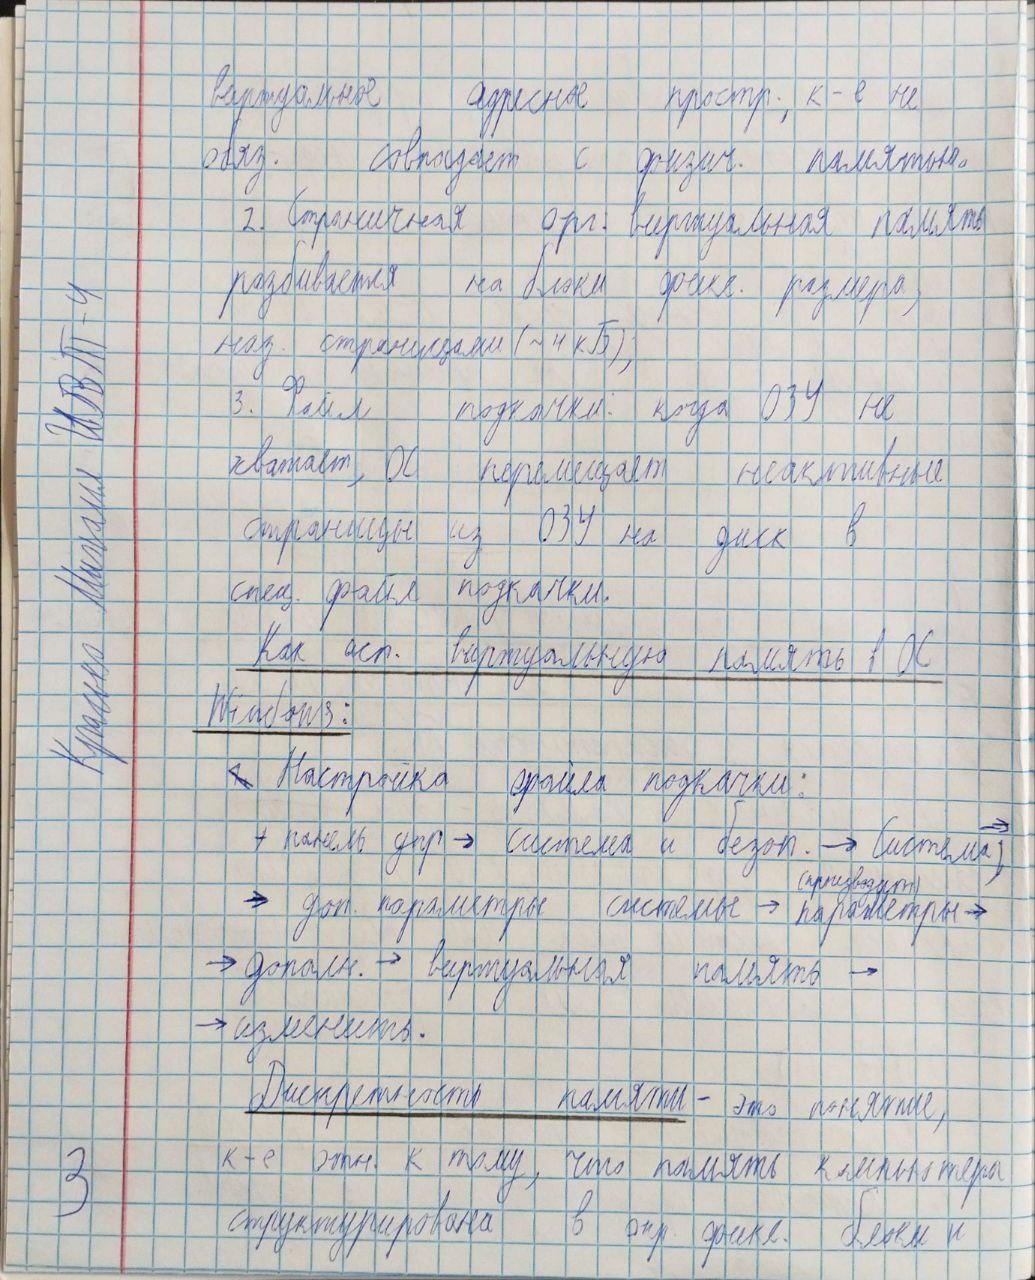 виртуальное адресное простр., к-е не
обяз. совпадает с физич. памятью.
2. Страничная орг. виртуальная память
разбивается на блоки фикс. размера,
наз. страницами (~4 кБ);
3. Файл подкачки: когда ОЗУ не
хватает, ОС перемещает неактивные
страницы из ОЗУ на диск в
спец. файл подкачки.
Как исп. виртуальную память в ОС
Windows:
Настройка файла подкачки:
+ панель упр → система и безоп. → система →
→ доп. параметры системы → параметры →
(производит)
→ дополн. → виртуальная память →
→ изменить.
Дискретность памяти - это понятие,
к-е отн. к тому, что память компьютера
структурирована в опр. фикс. блоки и
Михаил ИВТ-4
3